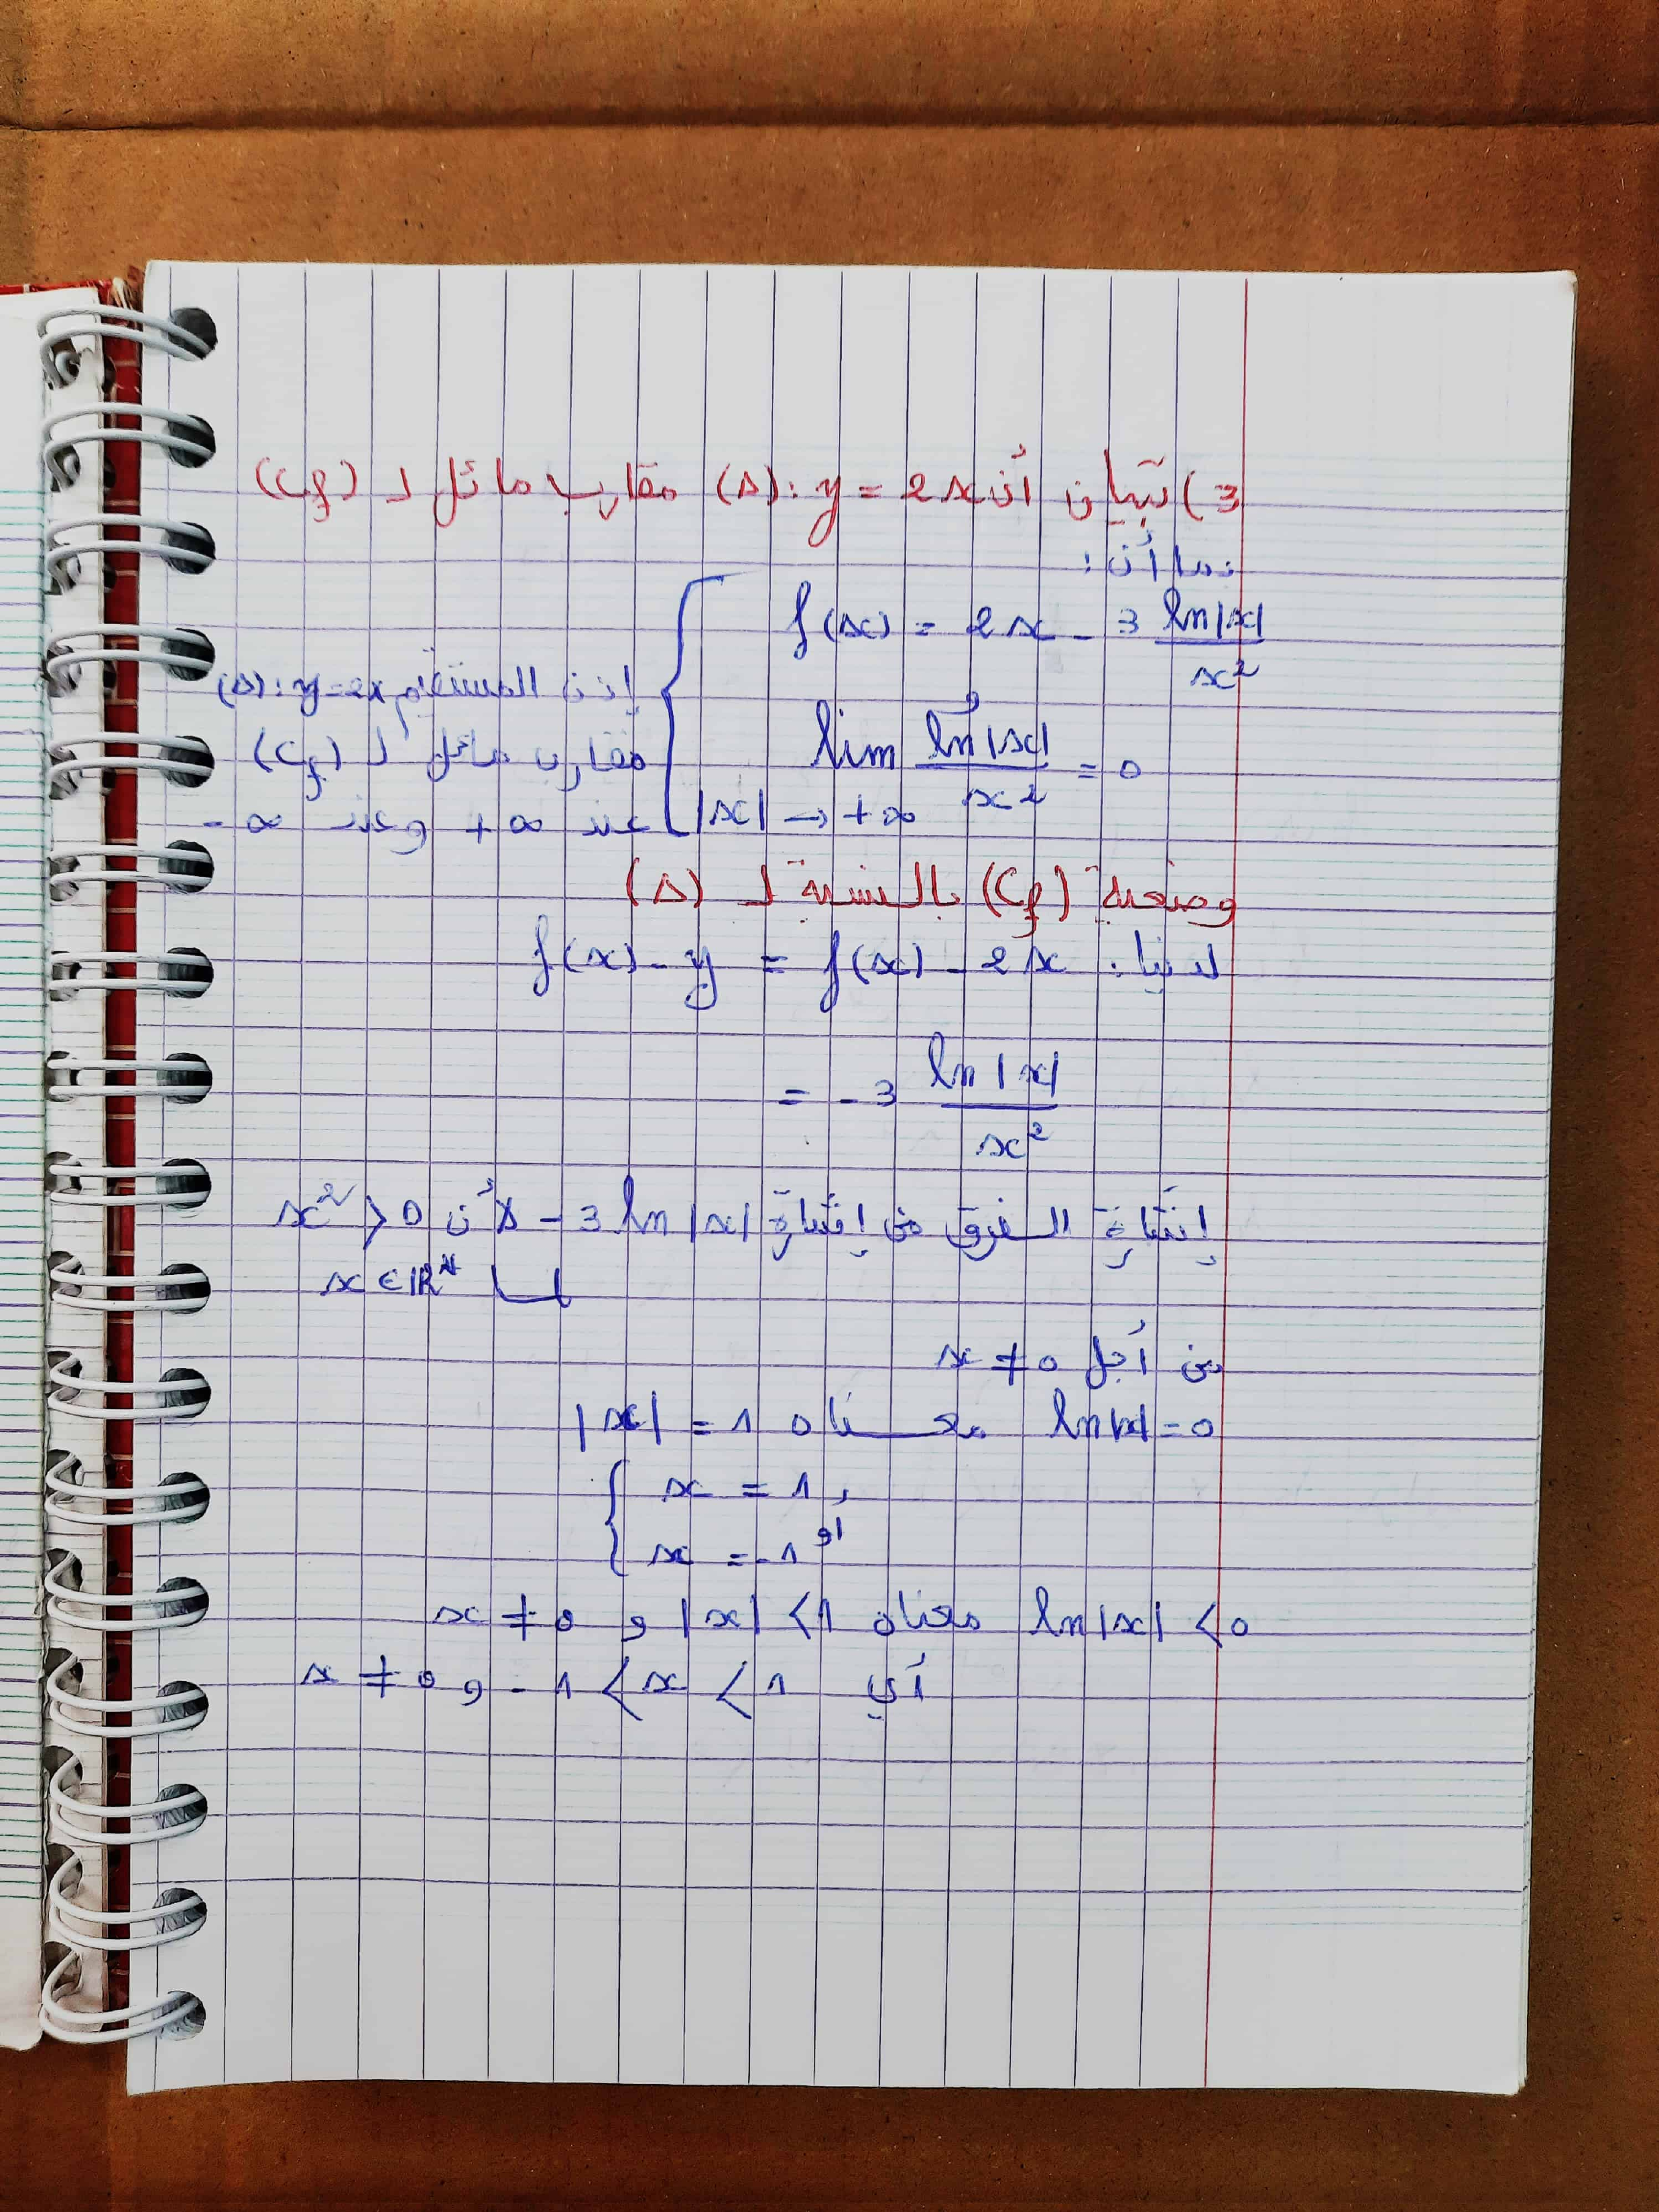 3) تبيان أن (Δ): y = 2x مقارب مائل لـ (Cf)
بما أن:
f(x) = 2x - 3 ln|x| / x²
و
lim ln|x| / x² = 0
|x| → +∞
إذن المستقيم (Δ): y = 2x
مقارب مائل لـ (Cf)
عند +∞ وعند -∞
وضعية (Cf) بالنسبة لـ (Δ)
لدينا: f(x) - y = f(x) - 2x
= -3 ln|x| / x²
إشارة الفرق من إشارة -3 ln|x| لأن x² > 0
لما x ∈ ℝ*
من أجل x ≠ 0
ln|x| = 0 معناه |x| = 1
x = 1
أو
x = -1
ln|x| < 0 معناه |x| < 1 و x ≠ 0
أي -1 < x < 1 و x ≠ 0